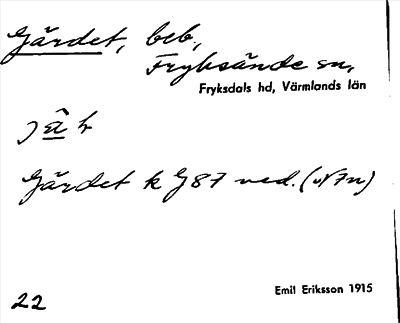 Gärdet, beb.,
Fryksände sn,
Fryksdals hd, Värmlands län
Gärdet k G87 ved. (v7n)
Emil Eriksson 1915
22